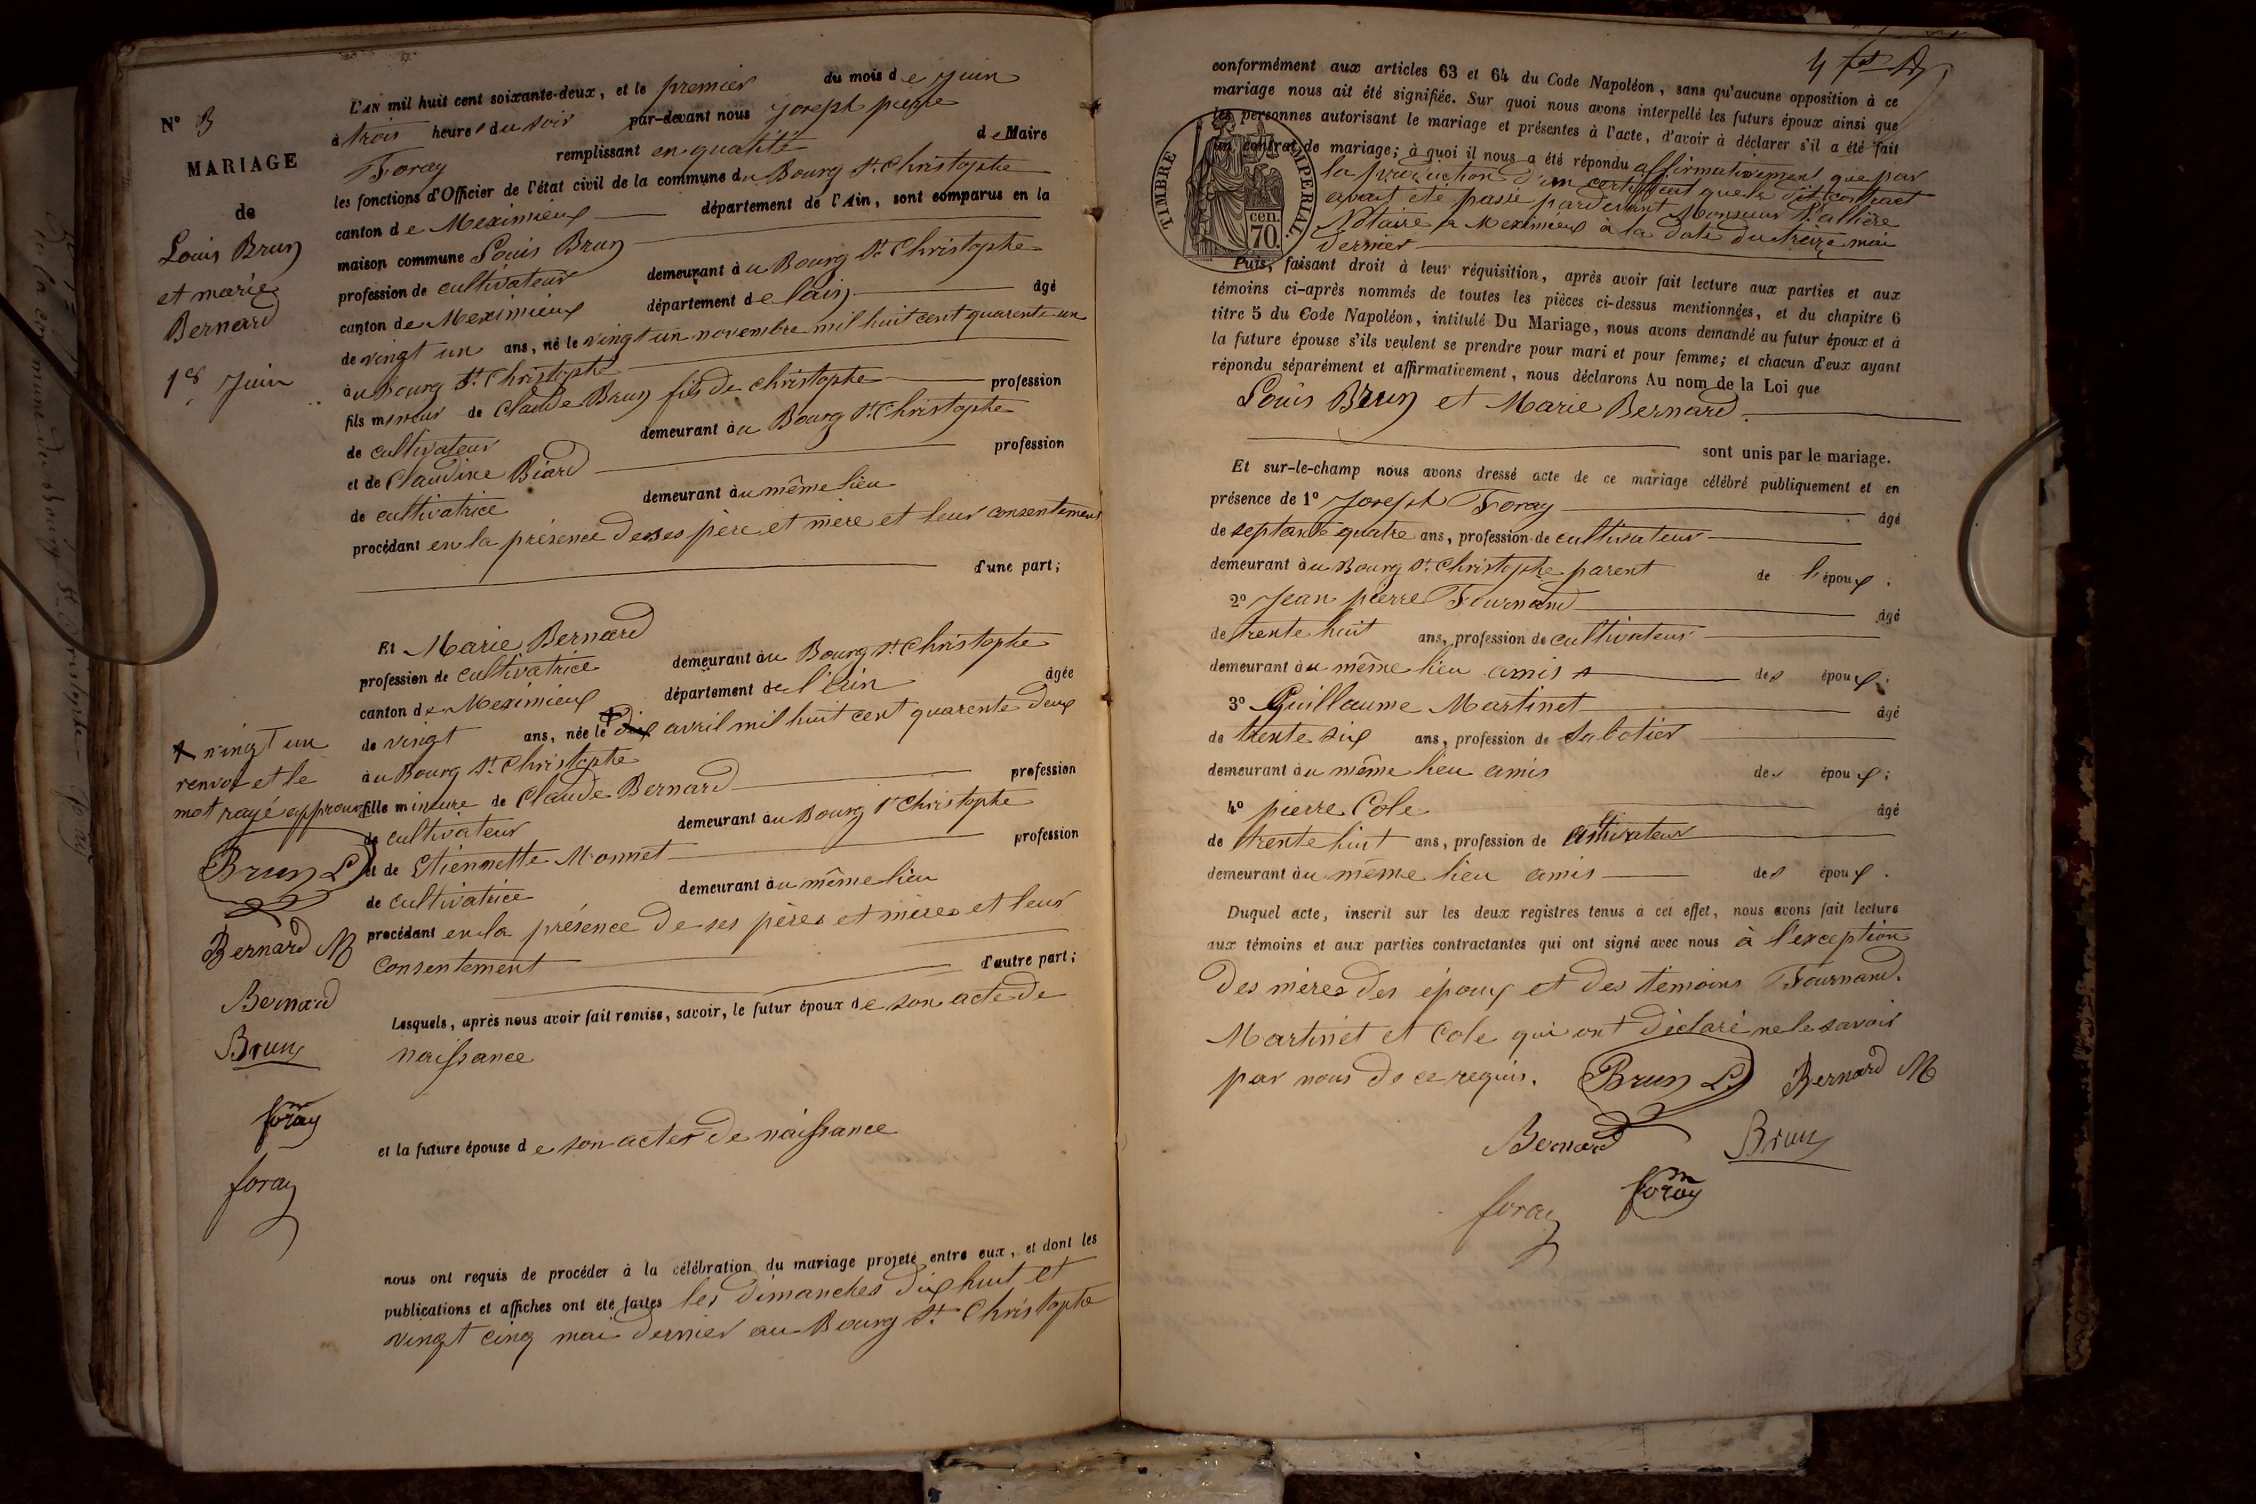 N° 3
MARIAGE
de
Louis Brun
et marie
Bernard
1er Juin
L'AN mil huit cent soixante-deux, et le premier du mois de Juin
à trois heures du soir par-devant nous joseph pierre
Foray remplissant en qualité de Maire
les fonctions d'Officier de l'état civil de la commune du Bourg St Christophe
canton de Meximieux département de l'Ain, sont comparus en la
maison commune Louis Brun
profession de cultivateur demeurant au Bourg St Christophe
canton de Meximieux département de lain âgé
de vingt un ans, né le vingt un novembre mil huit cent quarente un
au Bourg St Christophe
fils mineur de Claude Brun fils de christophe profession
de cultivateur demeurant au Bourg St Christophe
et de Claudine Biard profession
de cultivatrice demeurant au même lieu
procédant en la présence de ses père et mère et leur consentement
d'une part;
Et Marie Bernard
profession de cultivatrice demeurant au Bourg St Christophe
canton de Meximieux département de l'Ain âgée
de vingt ans, née le dix avril mil huit cent quarente deux
au Bourg St Christophe
fille mineure de Claude Bernard profession
de cultivateur demeurant au Bourg St Christophe
et de Etiennette Monnet profession
de cultivatrice demeurant au même lieu
procédant en la présence de ses pères et mères et leur
Consentement d'autre part;
Lesquels, après nous avoir fait remise, savoir, le futur époux de son acte de
naissance
et la future épouse de son actes de naissance
nous ont requis de procéder à la célébration du mariage projeté entre eux, et dont les
publications et affiches ont été faites les dimanches dix huit et
vingt cinq mai dernier au Bourg St Christophe
vingt un
renvoi et le
mot rayé approuvé
Brun L
Bernard M
Bernard
Brun
foray
foray
conformément aux articles 63 et 64 du Code Napoléon, sans qu'aucune opposition à ce
mariage nous ait été signifiée. Sur quoi nous avons interpellé les futurs époux ainsi que
les personnes autorisant le mariage et présentes à l'acte, d'avoir à déclarer s'il a été fait
un contrat de mariage; à quoi il nous a été répondu affirmativement que par
la production d'un certificat que le dit contract
avait été passé pardevant Monsieur
Notaire à Meximieux à la date du treize mai
dernier
TIMBRE IMPERIAL.
cen.
70.
Puis, faisant droit à leur réquisition, après avoir fait lecture aux parties et aux
témoins ci-après nommés de toutes les pièces ci-dessus mentionnées, et du chapitre 6
titre 5 du Code Napoléon, intitulé Du Mariage, nous avons demandé au futur époux et à
la future épouse s'ils veulent se prendre pour mari et pour femme; et chacun d'eux ayant
répondu séparément et affirmativement, nous déclarons Au nom de la Loi que
Louis Brun et Marie Bernard
sont unis par le mariage.
Et sur-le-champ nous avons dressé acte de ce mariage célébré publiquement et en
présence de 1° Joseph Foray âgé
de septante quatre ans, profession de cultivateur
demeurant au Bourg St Christophe parent de l'époux.
2° Jean pierre Fournand âgé
de trente huit ans, profession de cultivateur
demeurant au même lieu amis des époux;
3° Guillaume Martinet âgé
de trente six ans, profession de sabotier
demeurant au même lieu amis des époux;
4° pierre Cole âgé
de trente huit ans, profession de cultivateur
demeurant au même lieu amis des époux.
Duquel acte, inscrit sur les deux registres tenus à cet effet, nous avons fait lecture
aux témoins et aux parties contractantes qui ont signé avec nous à l'exception
des mères des époux et des témoins Fournand.
Martinet et Cole qui ont déclaré ne le savoir
par nous de ce requis. Brun L Bernard M
Bernard Brun
foray foray